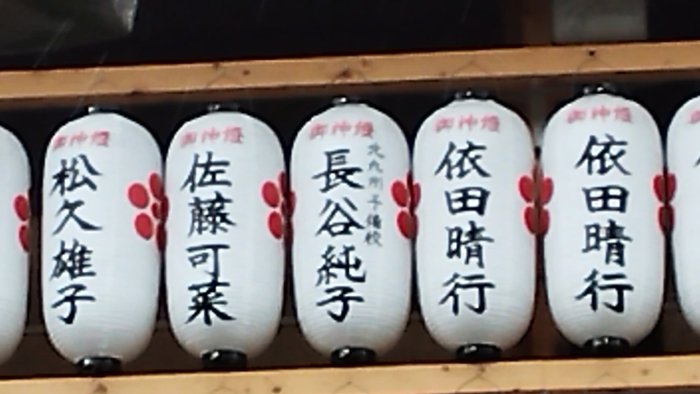 御神燈
松久雄子
御神燈
佐藤可菜
御神燈
北九州予備校
長谷純子
御神燈
依田晴行
御神燈
依田晴行